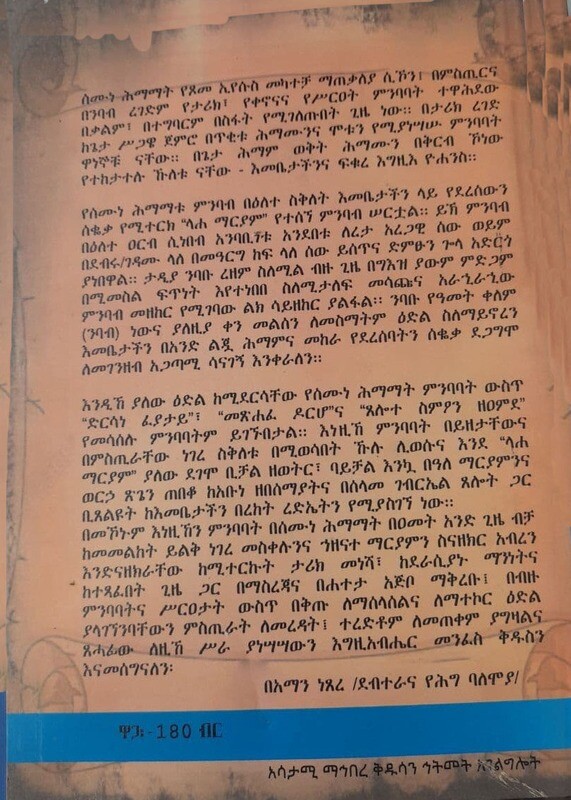 ሰሙነ ሕማማት የጾመ ኢየሱስ መካተቻ ማጠቃለያ ሲኾን፤ በምስጢርና
በንባብ ረገድም የታሪክ፣ የቀኖናና የሥርዐት ምንባባት ተዋሕደው
በቃልም፣ በተግባርም በስፋት የሚገለጡበት ጊዜ ነው። በታሪክ ረገድ
ከጌታ ሥጋዌ ጀምሮ በጥቂቱ ሕማሙንና ሞቱን የሚያነሣሡ ምንባባት
ዋነኞቹ ናቸው። በጌታ ሕማም ወቅት ሕማሙን በቅርብ ኾነው
የተከታተሉ ኹለቱ ናቸው - እመቤታችንና ፍቁረ እግዚእ ዮሐንስ።
የሰሙነ ሕማማቱ ምንባብ በዕለተ ስቅለት እመቤታችን ላይ የደረሰውን
ሰቈቃ የሚተርክ “ላሐ ማርያም” የተሰኘ ምንባብ ሠርቷል። ይኽ ምንባብ
በዕለተ ዐርብ ሲነበብ አንባቢዋቹ እንደበቱ ለረታ አረጋዊ ሰው ወይም
በደብሩ/ገዳሙ ላለ በመዓርግ ከፍ ላለ ሰው ይሰጥና ድምፁን ጐላ አድርጎ
ያነበዋል። ታዲያ ንባቡ ረዘም ስለሚል ብዙ ጊዜ በግእዝ ያውም ምድጋም
በሚመስል ፍጥነት እየተነበበ ስለሚታለፍ መሳጩና አራኂራኂው
ምንባብ መዘከር የሚገባው ልክ ሳይዘከር ያልፋል። ንባቡ የዓመት ቀለም
(ንባብ) ነውና ያለዚያ ቀን መልሰን ለመስማትም ዕድል ስለማይኖረን
እመቤታችን በአንድ ልጇ ሕማምና መከራ የደረሰባትን ሰቈቃ ደጋግሞ
ለመገንዘብ አጋጣሚ ሳናገኝ እንቀራለን።
እንዲኽ ያለው ዕድል ከሚደርሳቸው የሰሙነ ሕማማት ምንባባት ውስጥ
“ድርሳነ ፈያታይ”፣ “መጽሐፈ ዶርሆ”ና “ጸሎተ ስምዖን ዘዐምደ”
የመሳሰሉ ምንባባትም ይገኙበታል። እነዚኽ ምንባባት በይዘታቸውና
በምስጢራቸው ነገረ ስቅለቱ በሚወሳበት ኹሉ ሊወሱና እንደ “ላሐ
ማርያም” ያለው ደገሞ ቢቻል ዘወትር፣ ባይቻል እንኳ በዓለ ማርያምንና
ወርኃ ጽጌን ጠበቆ ከአቡነ ዘበሰማያትና በሰላመ ገብርኤል ጸሎት ጋር
ቢጸልዩት ከእመቤታችን በረከት ረድኤትን የሚያስገኝ ነው።
በመኾኑም እነዚኽን ምንባባት በሰሙነ ሕማማት በዐመት አንድ ጊዜ ብቻ
ከመመልከት ይልቅ ነገረ መስቀሉንና ኀዘናተ ማርያምን ስናዘክር አብረን
እንድናዘክራቸው ከሚተርኩት ታሪክ መነሻ፣ ከደራሲያኑ ማንነትና
ከተጻፈበት ጊዜ ጋር በማስረጃና በሐተታ አጅቦ ማቅረቡ፤ በብዙ
ምንባባትና ሥርዐታት ውስጥ በቅጡ ለማሰላሰልና ለማተኮር ዕድል
ያላገኘንባቸውን ምስጢራት ለመረዳት፤ ተረድቶም ለመጠቀም ያግዛልና
ጸሓፊው ለዚኽ ሥራ ያነሣሣውን እግዚአብሔር መንፈስ ቅዱስን
እናመሰግናለን፡
በአማን ነጸረ /ደብተራና የሕግ ባለሞያ/
ዋጋ፡-180 ብር
አሳታሚ ማኅበረ ቅዱሳን ኅትመት አገልግሎት